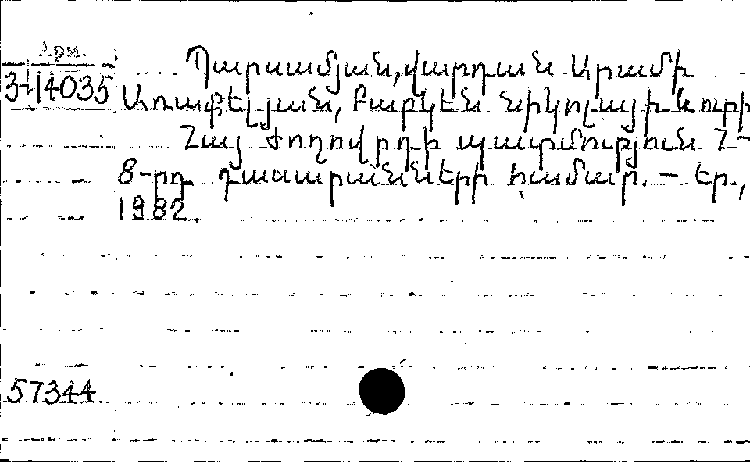 Հրм.
3-14035
Պարսամյան, վարդան Արամի
Առաքելյան, Բաբկեն Նիկոլայի և ուրի
Հայ ժողովրդի պատմություն 7-
8-րդ դասարանների համար. – Եր.,
1982.
57344